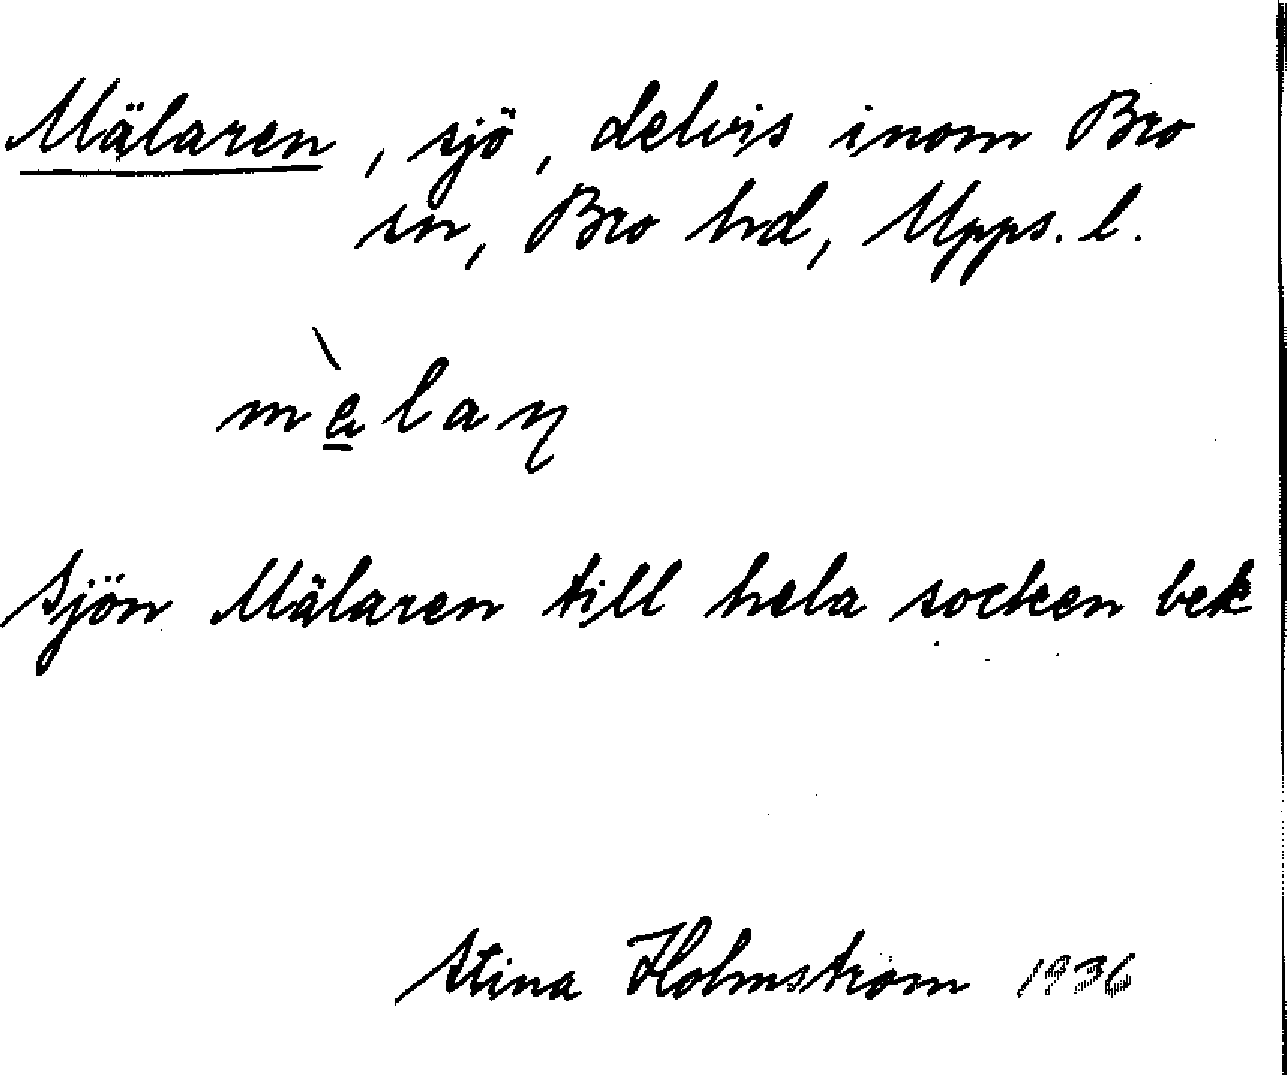 Mälaren, sjö, delvis inom Bro
sn, Bro hd, Upps. l.
mèlaη
Sjön Mälaren till hela socken bek
Stina Holmström 1936